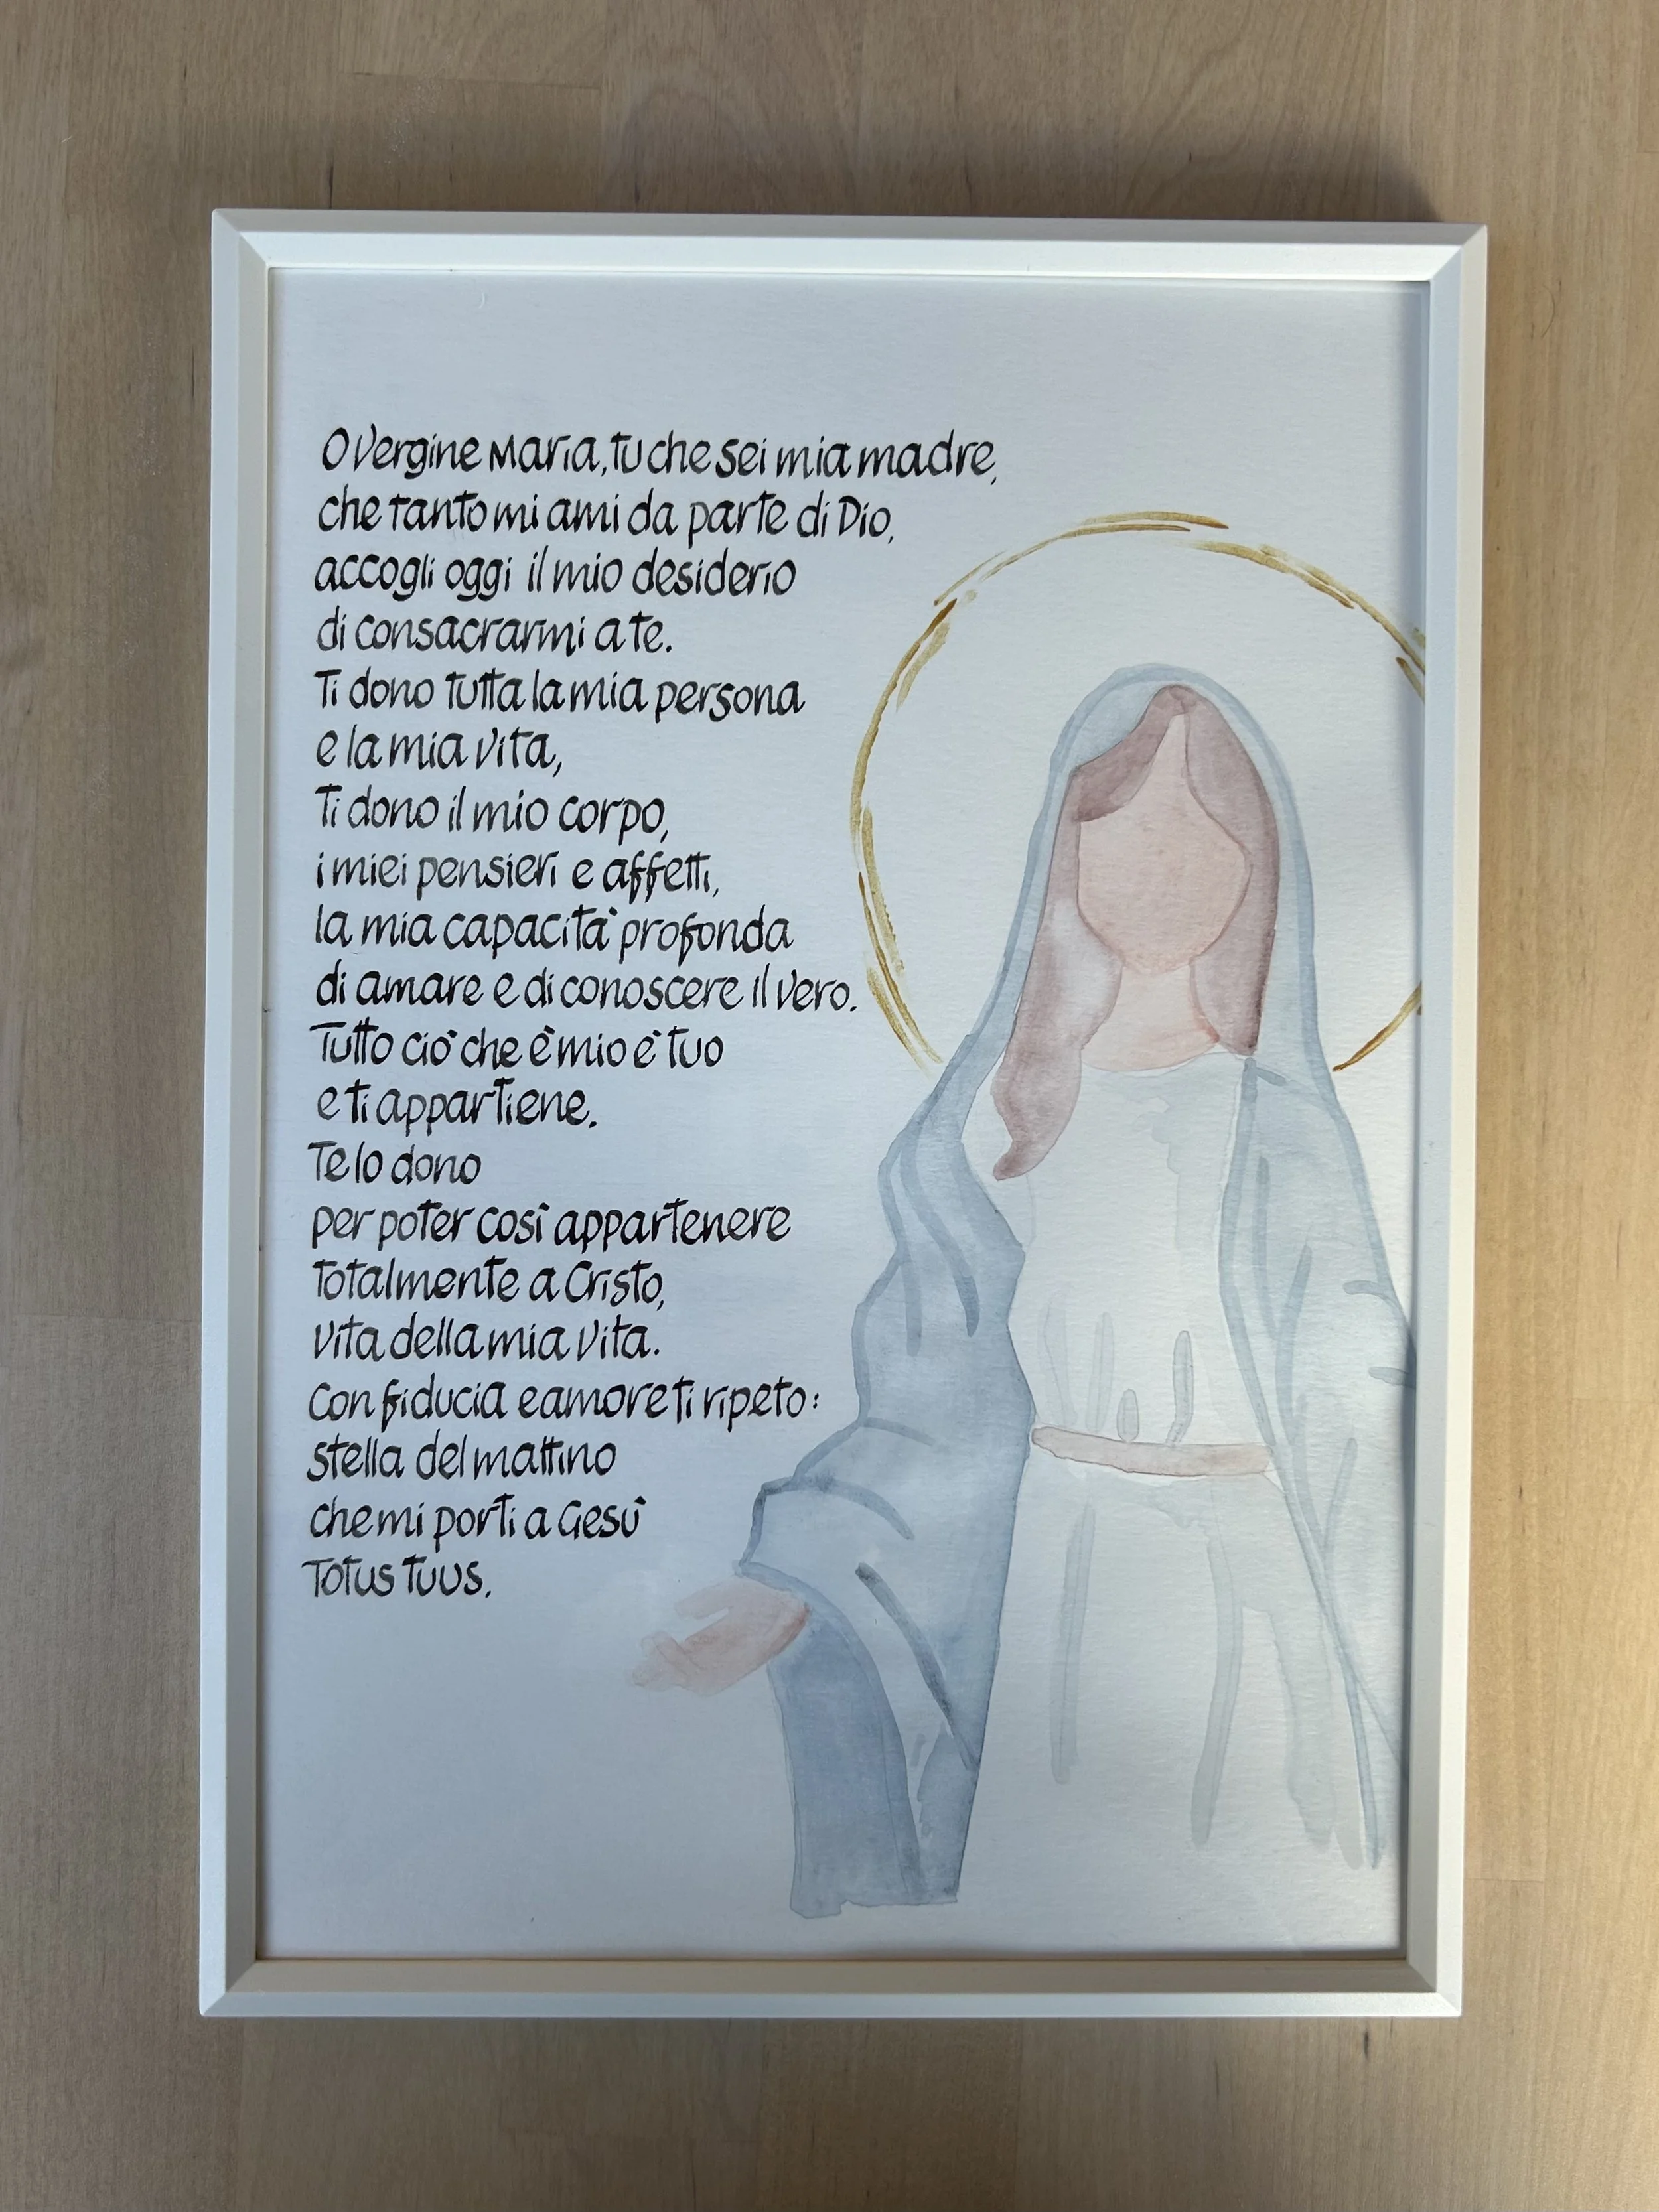 O Vergine Maria, tu che sei mia madre,
che tanto mi ami da parte di Dio,
accogli oggi il mio desiderio
di consacrarmi a te.
Ti dono tutta la mia persona
e la mia vita,
Ti dono il mio corpo,
i miei pensieri e affetti,
la mia capacità profonda
di amare e di conoscere il vero.
Tutto ciò che è mio è tuo
e ti appartiene.
Te lo dono
per poter così appartenere
totalmente a Cristo,
vita della mia vita.
Con fiducia e amore ti ripeto:
stella del mattino
che mi porti a Gesù
Totus tuus.